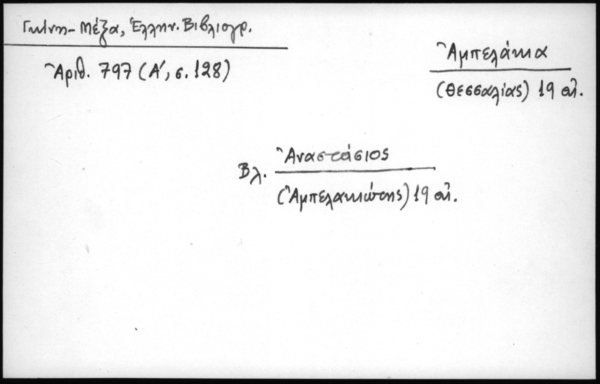 Γκίνη-Μέξα, Ἑλλην. Βιβλιογρ.
Ἀριθ. 797 (Α΄, σ. 128)
Ἀμπελάκια
(Θεσσαλίας) 19 αἰ.
Βλ. Ἀναστάσιος
(Ἀμπελακιώτης) 19 αἰ.